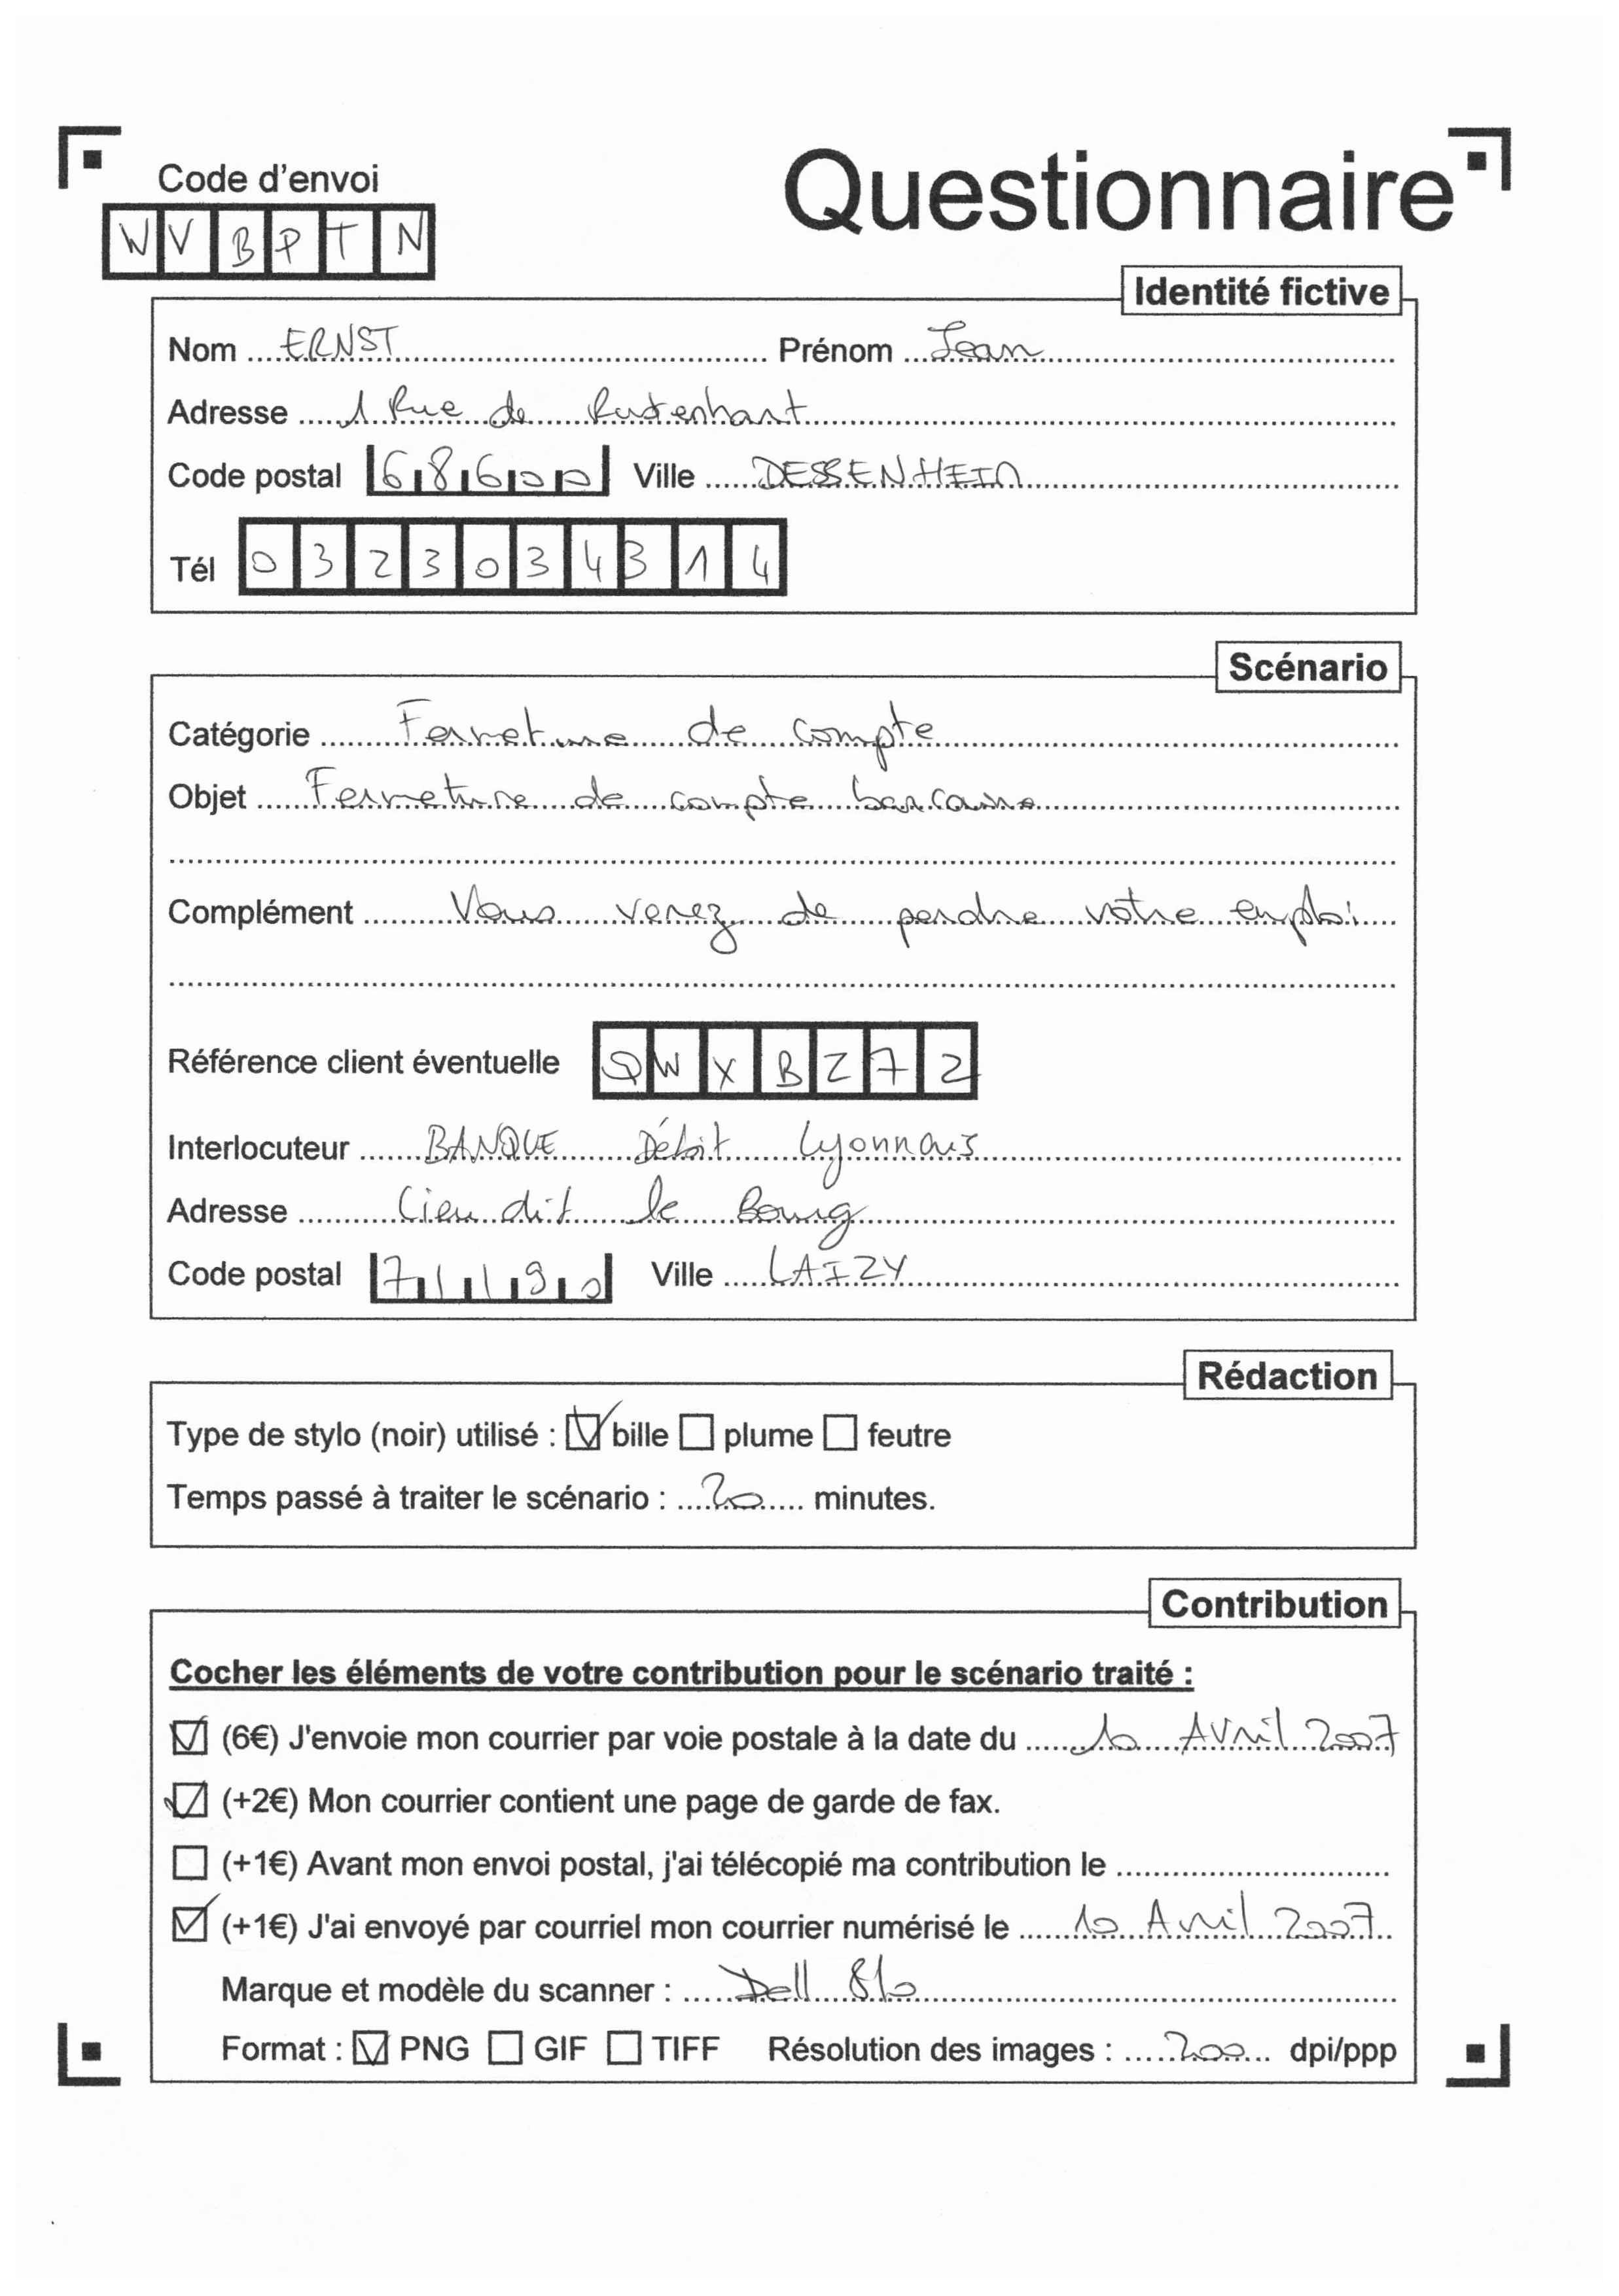 Code d'envoi
Questionnaire
W V B P T N
Identité fictive
Nom ERNST Prénom Jean
Adresse 1 Rue de Rustenhart
Code postal 68600 Ville DESSENHEIM
Tél 0323034314
Scénario
Catégorie Fermeture de compte
Objet Fermeture de compte bancaire
Complément Vous venez de perdre votre emploi
Référence client éventuelle QWXBZ72
Interlocuteur BANQUE Débit Lyonnais
Adresse Lieu dit le Bourg
Code postal 71190 Ville LAIZY
Rédaction
Type de stylo (noir) utilisé : bille plume feutre
Temps passé à traiter le scénario : 20 minutes.
Contribution
Cocher les éléments de votre contribution pour le scénario traité :
(6€) J'envoie mon courrier par voie postale à la date du 10 Avril 2007
(+2€) Mon courrier contient une page de garde de fax.
(+1€) Avant mon envoi postal, j'ai télécopié ma contribution le
(+1€) J'ai envoyé par courriel mon courrier numérisé le 10 Avril 2007
Marque et modèle du scanner : Dell 810
Format : PNG GIF TIFF Résolution des images : 200 dpi/ppp